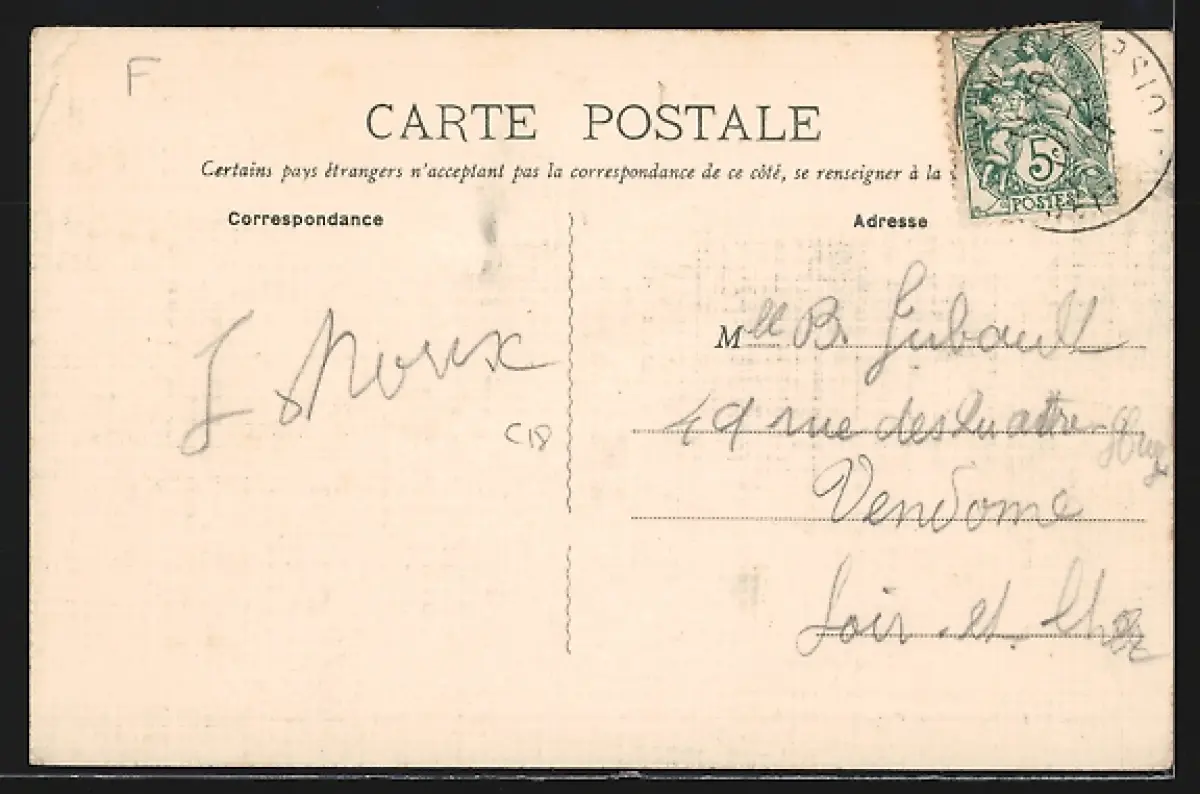 F
CARTE POSTALE
Certains pays étrangers n'acceptant pas la correspondance de ce côté, se renseigner à la
Correspondance
Adresse
5c
POSTES
Mlle B. Jubault
49 rue des Quattre
Vendome
Loir et Cher
C18